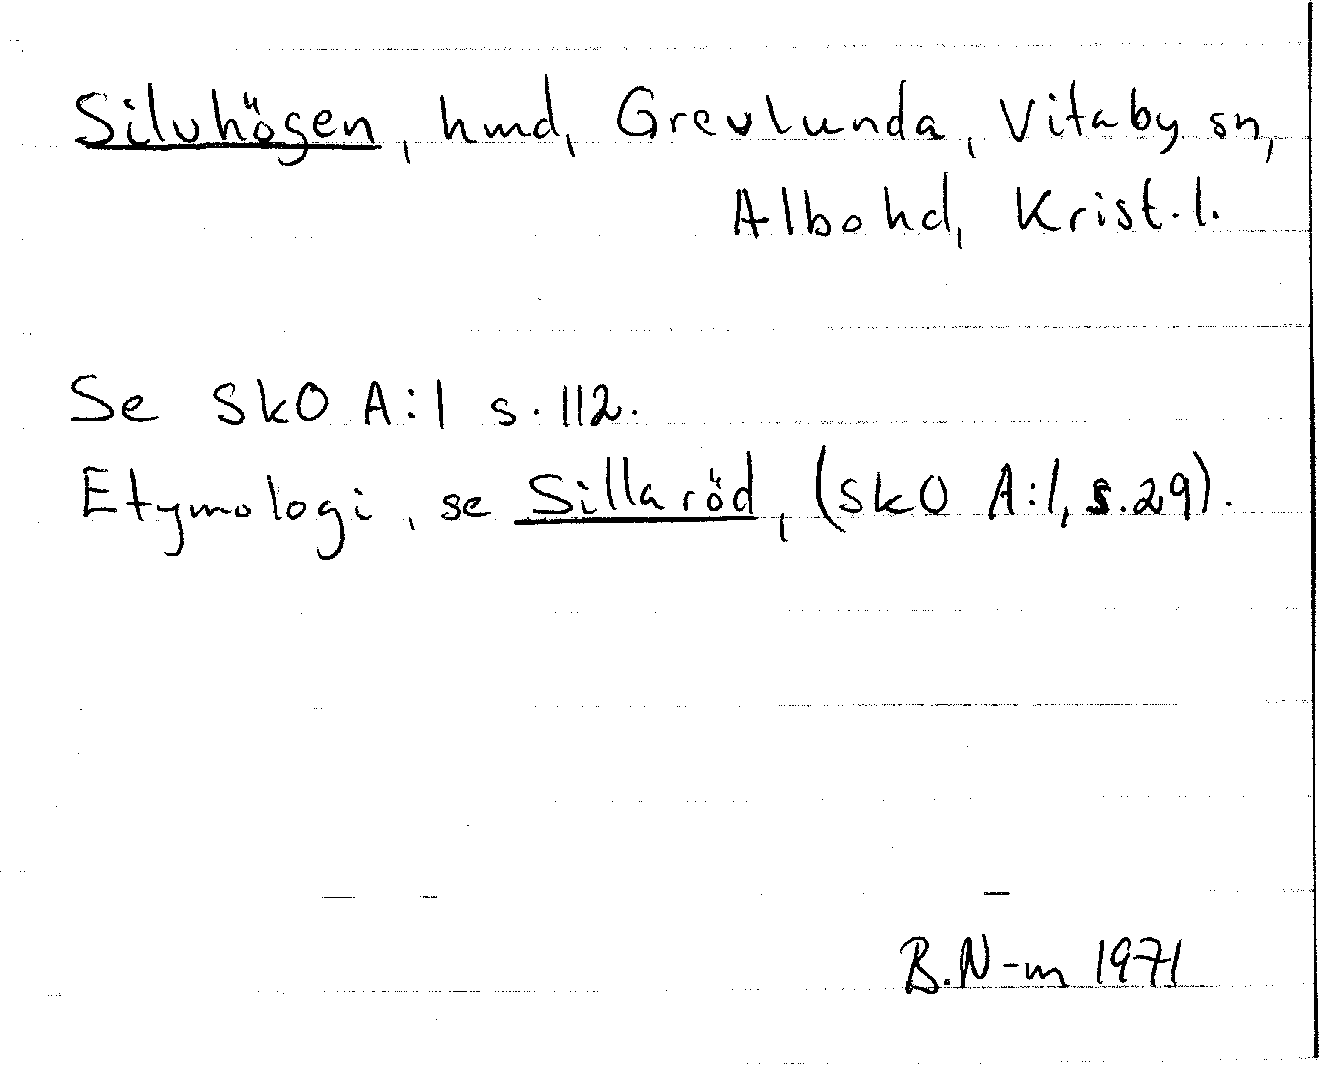 Siluhögen, hmd, Grevlunda, Vitaby sn,
Albo hd, Krist. l.
Se SkO A:1 s. 112.
Etymologi, se Sillaröd, (SkO A:1, s. 29).
B. N-m 1971